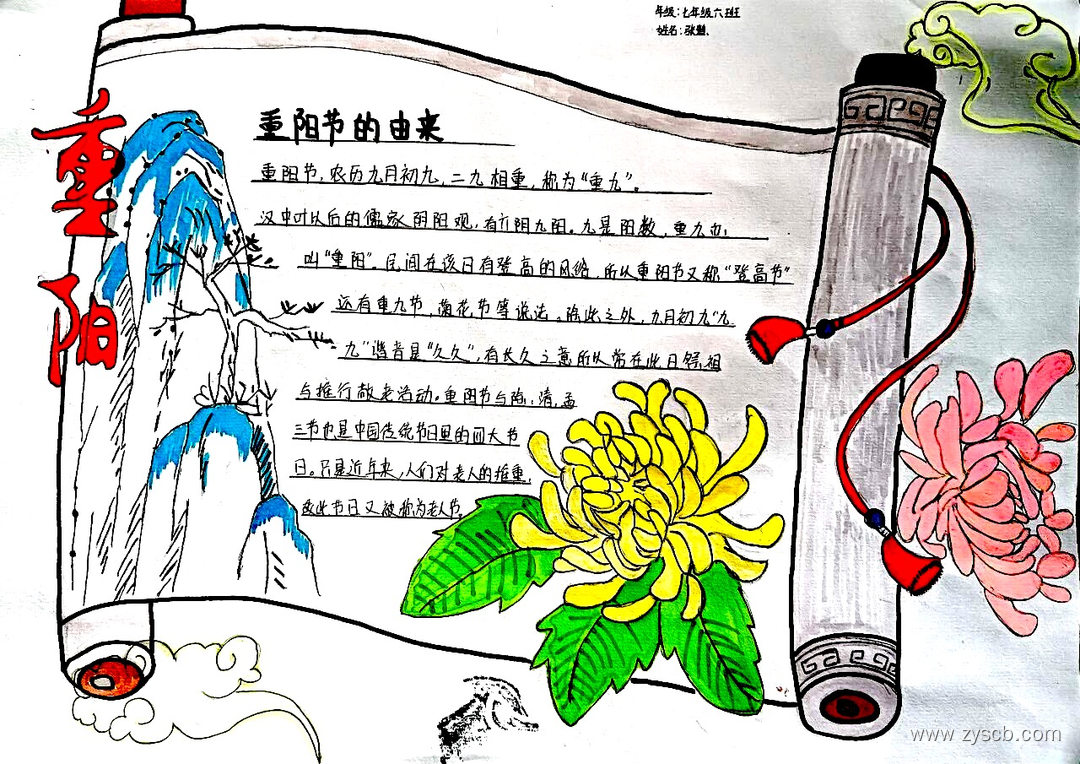 年级:七年级六班
姓名:张
重阳
重阳节的由来
重阳节,农历九月初九,二九相重,称为“重九”。
汉中叶以后的儒家阴阳观,有六阴九阳。九是阳数,重九也
叫“重阳”。民间在该日有登高的风俗,所以重阳节又称“登高节”
还有重九节,菊花节等说法。除此之外,九月初九“九
九”谐音是“久久”,有长久之意所以常在此日祭祖
与推行敬老活动。重阳节与除,清,盂
三节也是中国传统节日里的四大节
日。只是近年来,人们对老人的推重,
故此节日又被称为老人节
www.zyscb.com